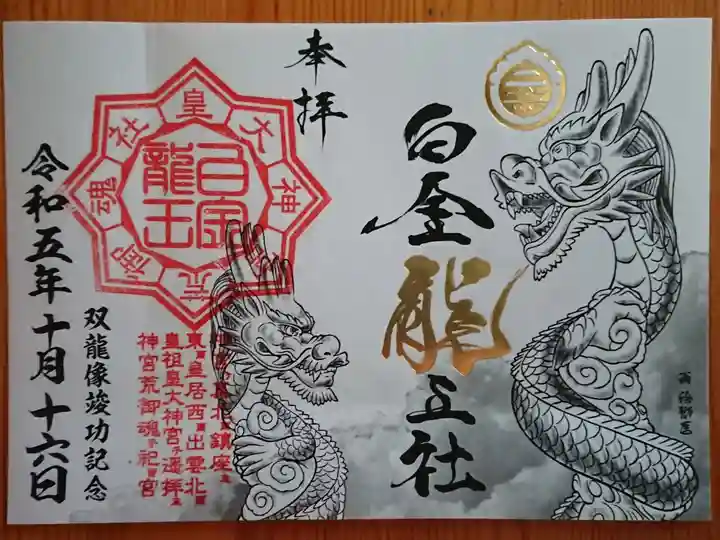 白金龍王社
奉拝
皇大神
荒御魂
白金龍王
鎮座
東ニ皇居西ニ出雲北ニ
皇祖皇大神宮ヲ遥拝ス
神宮荒御魂ヲ祀ル宮
双龍像竣功記念
令和五年十月十六日